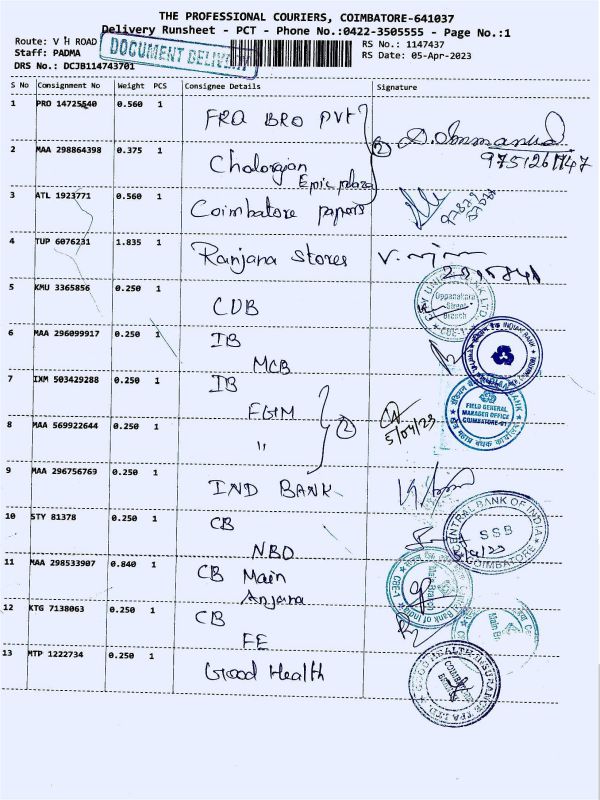 THE PROFESSIONAL COURIERS, COIMBATORE-641037
Delivery Runsheet - PCT - Phone No.:0422-3505555 - Page No.:1
Route: V H ROAD
Staff: PADMA
DRS No.: DCJB114743701
DOCUMENT DELIVERY
RS No.: 1147437
RS Date: 05-Apr-2023
S No Consignment No Weight PCS Consignee Details Signature
1 PRO 14725640 0.560 1 FRO BRO PVt
2 MAA 298864398 0.375 1
Epic plaza
(2) 9751261747
3 ATL 1923771 0.560 1 Coimbatore papers
4 TUP 6076231 1.835 1 Ranjana Stores
5 KMU 3365856 0.250 1 CUB
Oppanakara Street Branch
CBE-1
6 MAA 296099917 0.250 1 IB
MCB
INDIAN BANK
7 IXM 503429288 0.250 1 IB
EGIM
(2) 5/04/23
FIELD GENERAL MANAGER OFFICE COIMBATORE-01
8 MAA 569922644 0.250 1 "
9 MAA 296756769 0.250 1 IND BANK
10 STY 81378 0.250 1 CB
NBD
CENTRAL BANK OF INDIA
SSB
COIMBATORE
11 MAA 298533907 0.840 1 CB Main
Anjana
12 KTG 7138063 0.250 1 CB
FE
Main Br
13 MTP 1222734 0.250 1 Good Health
GOOD HEALTH INSURANCE TPA LTD.